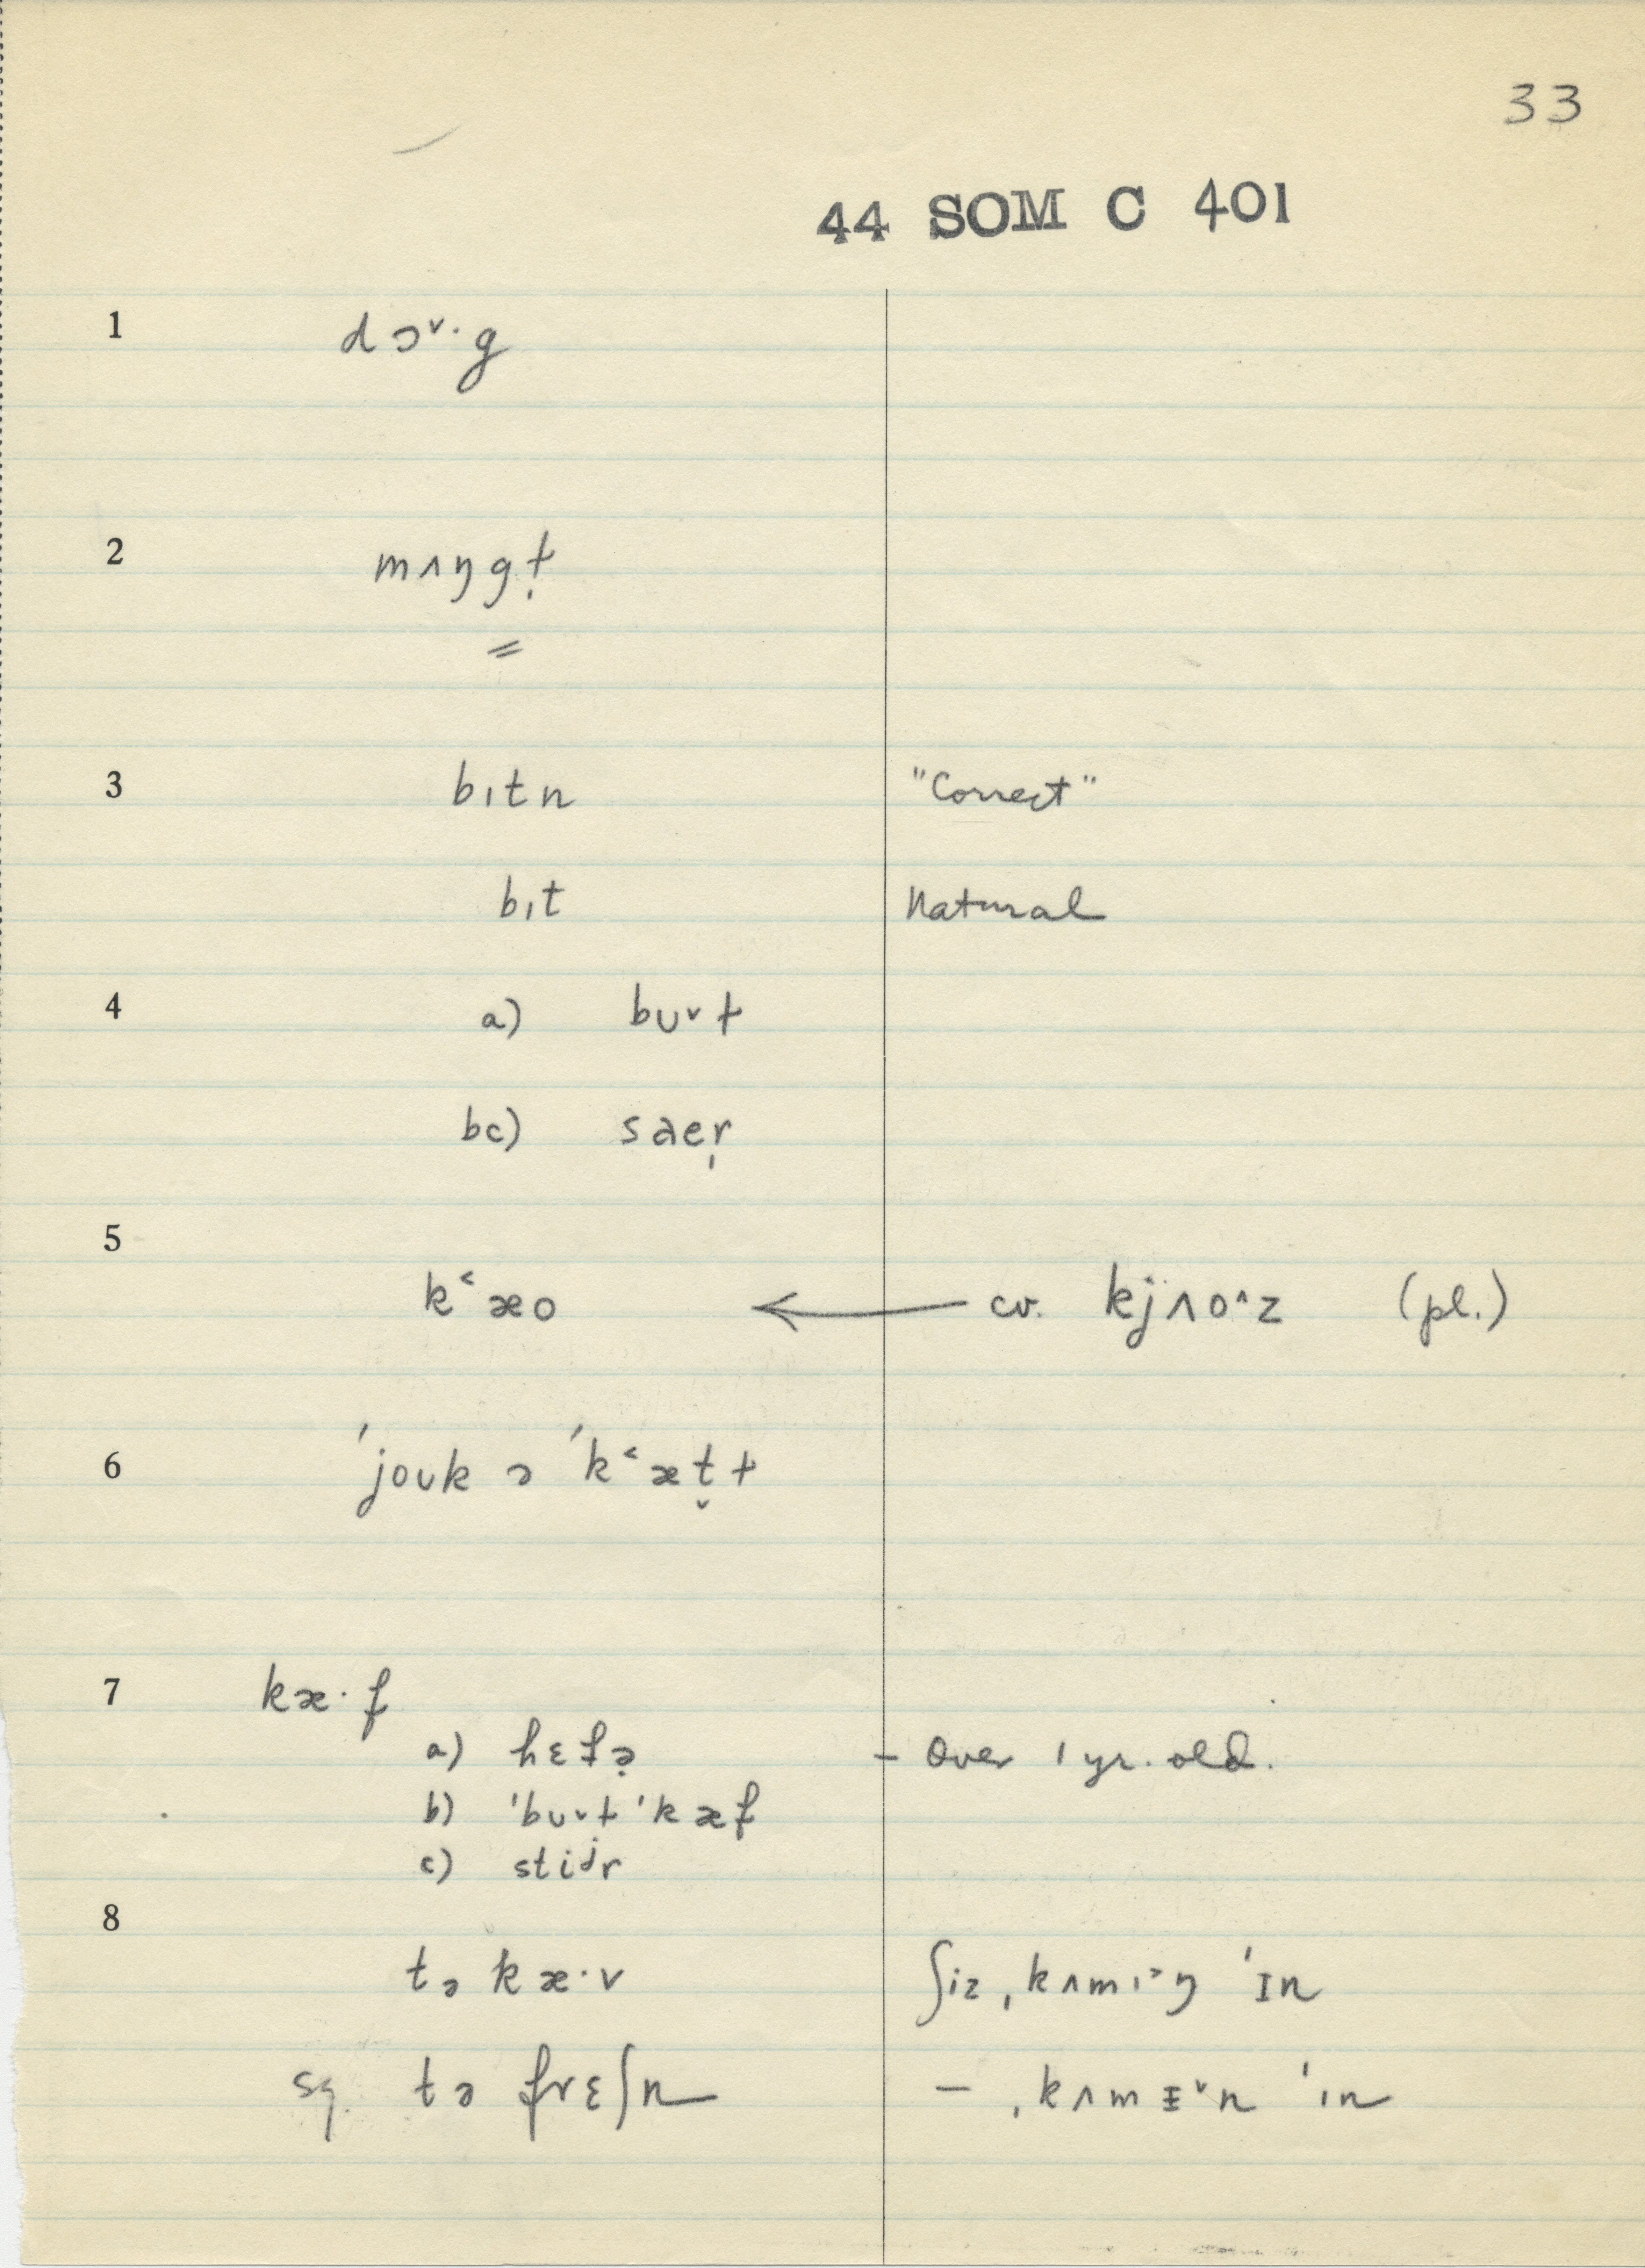 33
44 SOM C 401
1 dɔ˅·g
2 mʌŋgɫ̩
=
3 bɪtn "Correct"
bɪt Natural
4 a) bʊ˅ɫ
bc) saer̩
5 k˂æo ← cv. kjʌo^z (pl.)
6 ˈjoʊk ə ˈk˂æt̬ɫ
7 kæ·f
a) hɛfə̣ - Over 1 yr. old.
b) ˈbʊ˅ɫ ˈkæf
c) stiʲr
8
tə kæ·v ʃiz ˌkʌmɪ˃ŋ ˈɪn
sg. tə frɛʃn — ˌkʌmɪ˅n ˈɪn